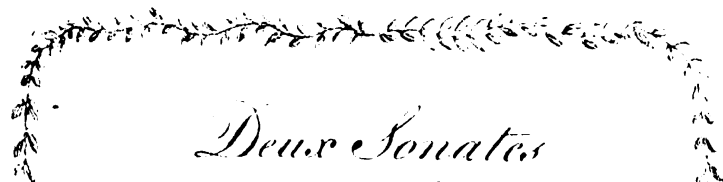 Deux Sonates